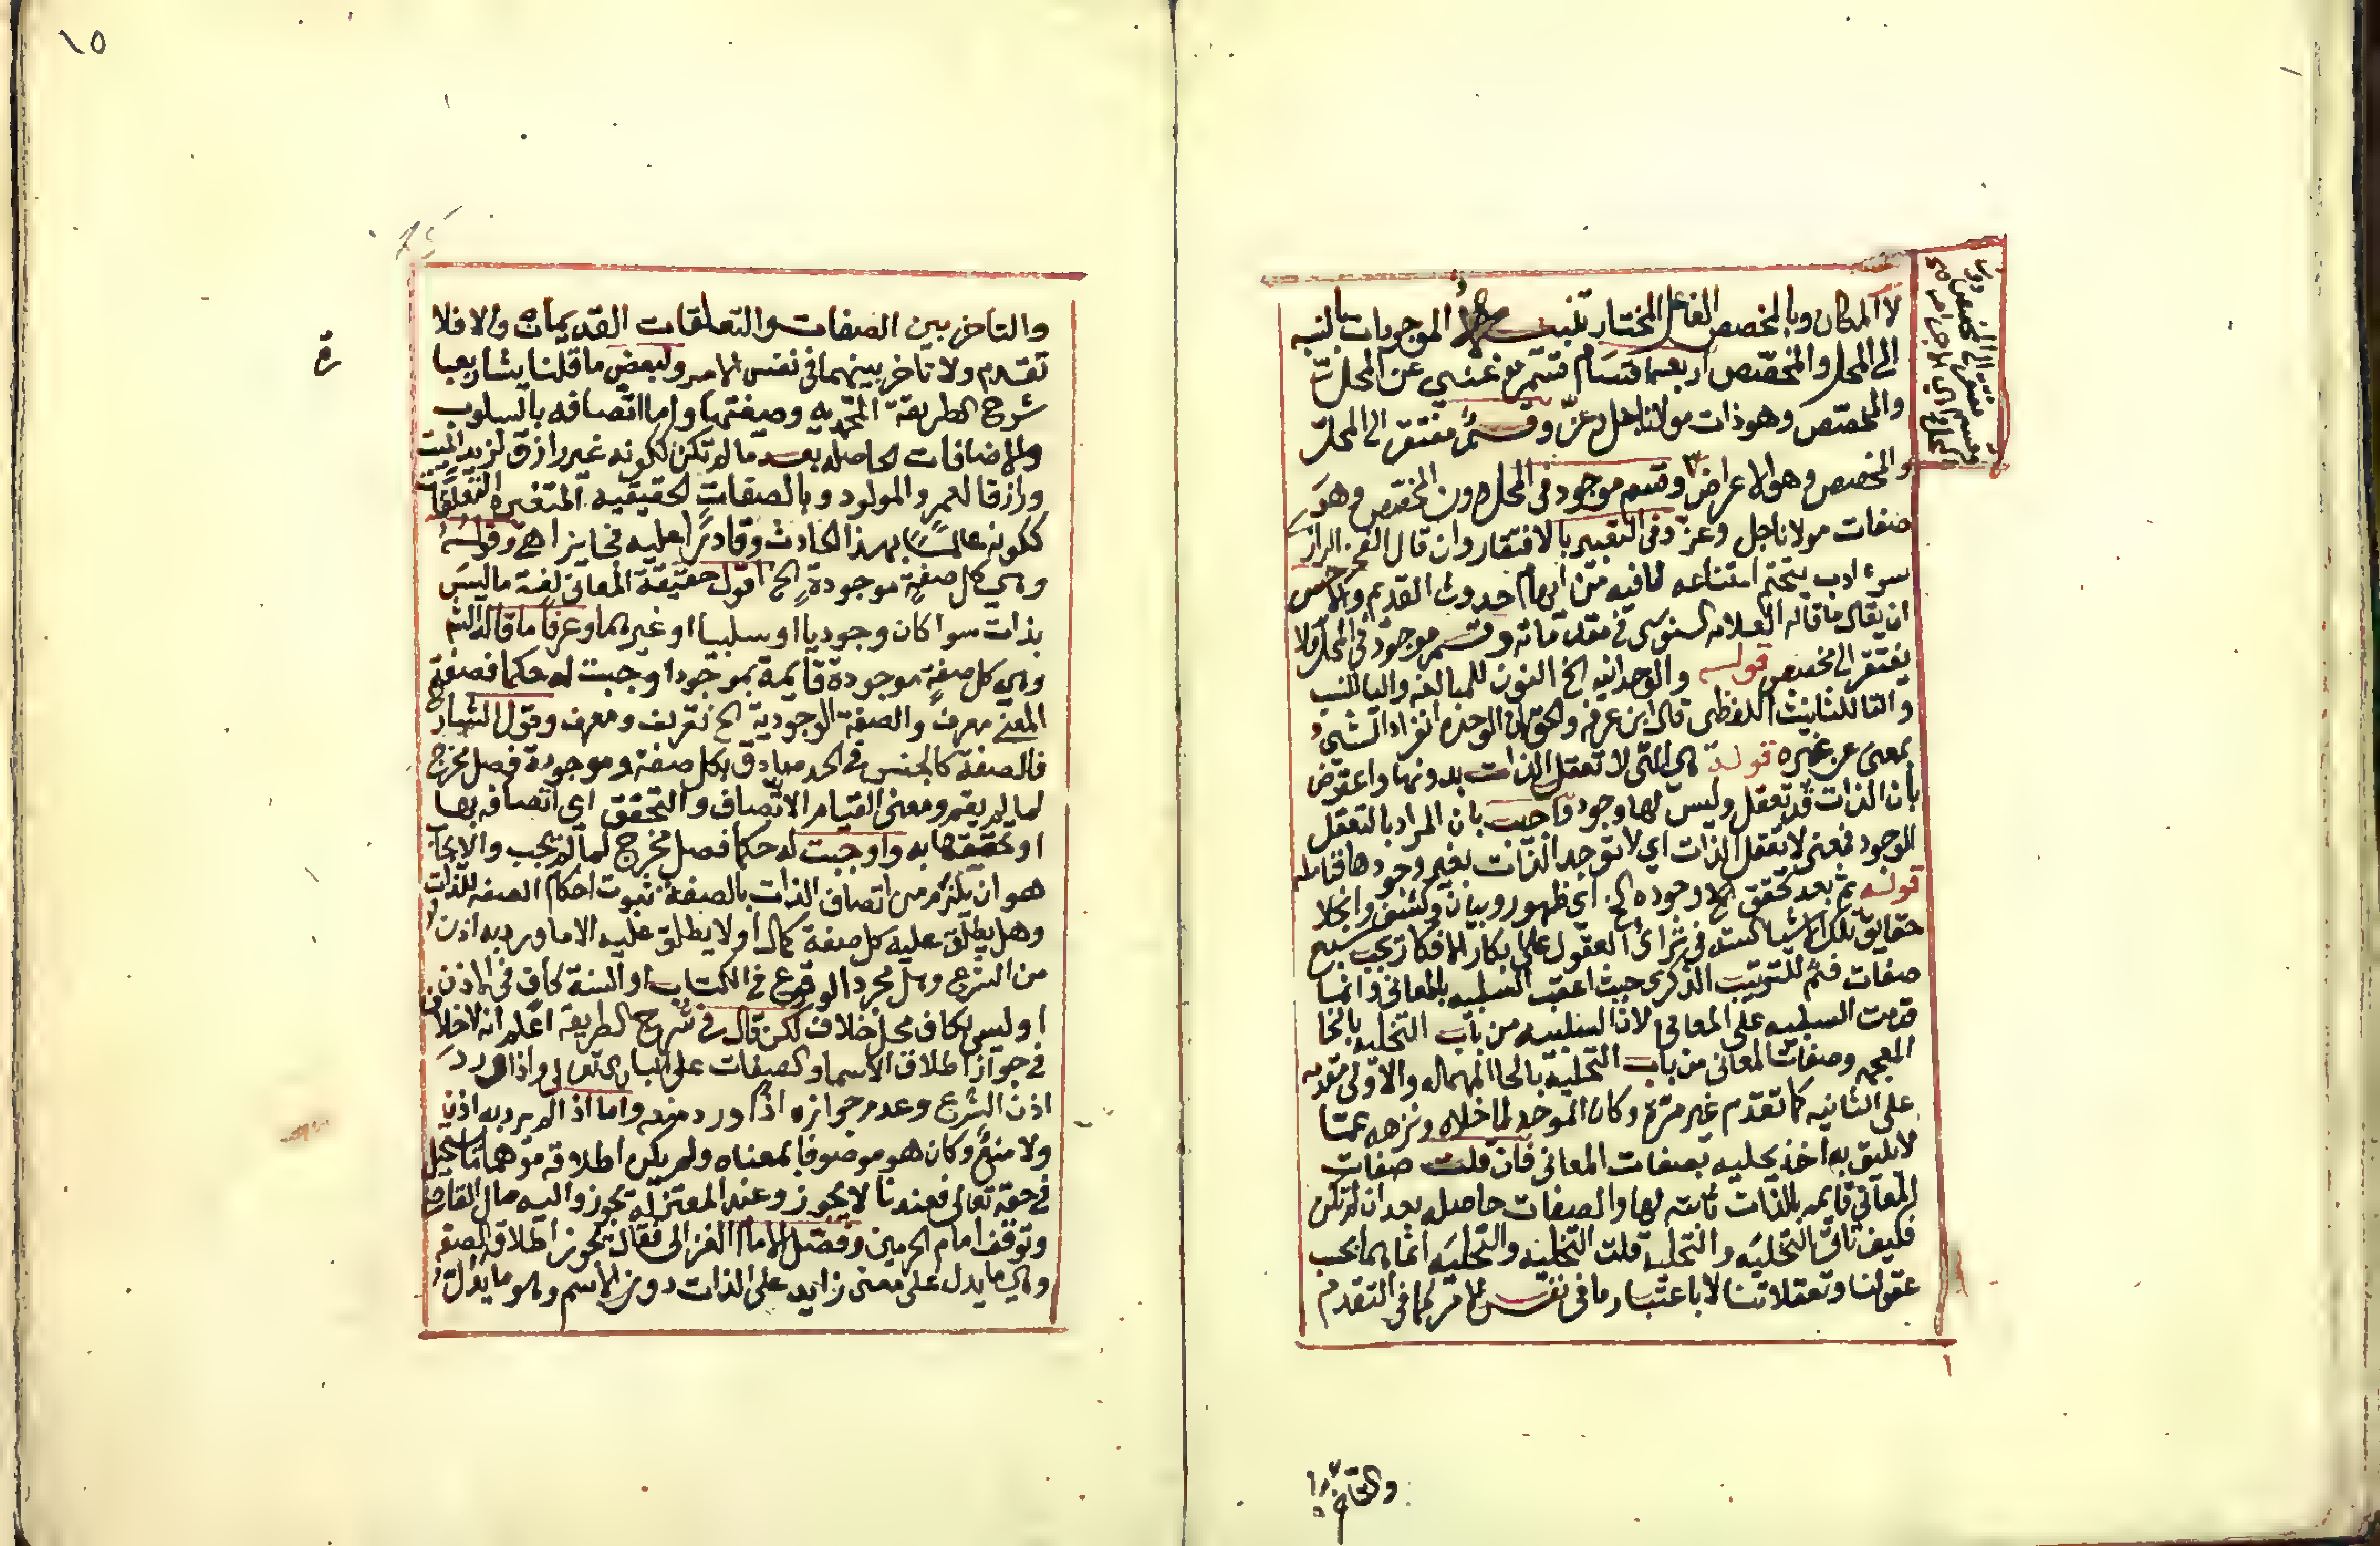 لا المكان وبالمخصص الفاعل المختار تنبيه الموجودات بالنسبة
الى المحل والمخصص اربعة اقسام قسم غني عن المحل
والمخصص وهو ذات مولانا جل وعز وقسم مفتقر الى المحل
والمخصص وهو الاعراض وقسم موجود في المحل دون المخصص وهو
صفات مولانا جل وعز وفي التعبير بالافتقار وان قال الفخر الرازي
سوء ادب يتحتم امتناعه لما فيه من ايهام حدوث القديم والاحسن
ان يقال ما قاله العلامه السنوسي في مقدماته وقسم موجود في المحل ولا
يفتقر الى مخصص قوله والوحدانيه الخ النون للمبالغه واليا للنسب
والتا للتانيث اللفظي قال ابن عرفه والحق ان الوحده انفراد الشيء
بمعنى عن غيره قوله هي التي لا تعقل الذات بدونها واعترض
بان الذات قد تعقل وليس لها وجود واجيب بان المراد بالتعقل
الوجود فمعنى لا تعقل الذات اي لا توجد الذات بغير وجودها فتامله
قوله ثم بعد تحقق الخ وجوده الخ اي ظهور وبيان وكشف وانجلا
حقايق تلك الاشيا العقول على ابكار الافكار تجب سبع
صفات فثم للترتيب الذكري حيث اعقب السلبيه بالمعاني وانما
قدمت السلبيه على المعاني لان السلبيه من باب التخليه بالخا
المعجمه وصفات المعاني من باب التحلية بالحا المهمله والاولى مقدمه
على الثانيه كما تقدم غير مرة وكان الموحد لما خلاه ونزهه عما
لا يليق به اخذ يحليه بصفات المعاني فان قلت صفات
المعاني قايمه بالذات ثابته لها والصفات حاصله بعد ان لم تكن
فكيف تاتى التخليه والتحليه قلت التخليه والتحليه انما هما بحسب
عقولنا وتعقلاتنا لا باعتبار ما في نفس الامر كما في التقدم
والتاخر
١٥
والتاخر بين الصفات والتعلقات القديمات والا فلا
تقدم ولا تاخر بينهما في نفس الامر ولبعض ما قلنا يشار بعبا
رة
شرح الطريقة المحمديه وصفتها واما اتصافه بالسلوب
والاضافات الحاصله بعد ما لم تكن ككونه غير رازق لزيد الميت
ورازقا لعمر والمولود وبالصفات الحقيقيه المتغيره التعلقات
ككونه عالما بهذا الحادث وقادرا عليه فجايز اهـ وقوله
وهي كل صفة موجودة الخ اقول حقيقة المعاني لغة ما ليس
بذات سوا كان وجوديا او سلبيا او غيرهما وعرفا ما قاله الشم
وهي كل صفة موجودة قايمة بموجود اوجبت له حكما فصفة
المعنى معرف والصفة الوجودية الخ تعريف ومعرف وقول الشارح
فالصفة كالجنس في الحد صادق بكل صفة وموجودة فصل مخرج
لما لم يقم ومعنى القيام الاتصاف والتحقق اي اتصافه بها
او تحققها به واوجبت له حكما فصل مخرج لما لم يجب والايجاب
هو ان يلزم من اتصاف الذات بالصفة ثبوت احكام الصفه للذات
وهل يطلق عليه كل صفة كمال او لا يطلق عليه الا ما ورد به اذن
من الشرع وهل مجرد الوقوع في الكتاب او السنة كاف في الاذن
او ليس بكاف محل خلاف لكن قال في شرح الطريقه اعلم انه لا خلاف
في جواز اطلاق الاسما والصفات على الباري تعالى اذا ورد
اذن الشرع وعدم جوازه اذا ورد منعه واما اذا لم يرد به اذن
ولا منع وكان هو موصوفا بمعناه ولم يكن اطلاقه موهما ما يستحيل
في حقه تعالى فعندنا لا يجوز وعند المعتزله يجوز واليه مال القاضي
وتوقف امام الحرمين وفصل الامام الغزالي فقال بجواز اطلاق الصفه
وهي ما يدل على معنى زايد على الذات دون الاسم وهو ما يدل